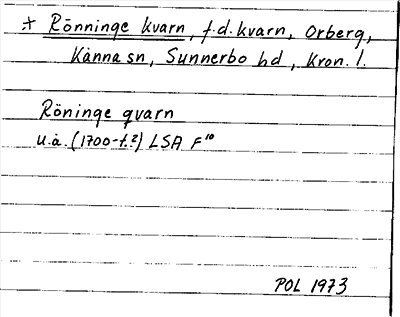 ∴+ Rönninge kvarn, f.d. kvarn, Orberg,
Kånna sn, Sunnerbo hd, Kron. l.
Röninge qvarn
u.å. (1700-t.?) LSA F¹⁰
POL 1973